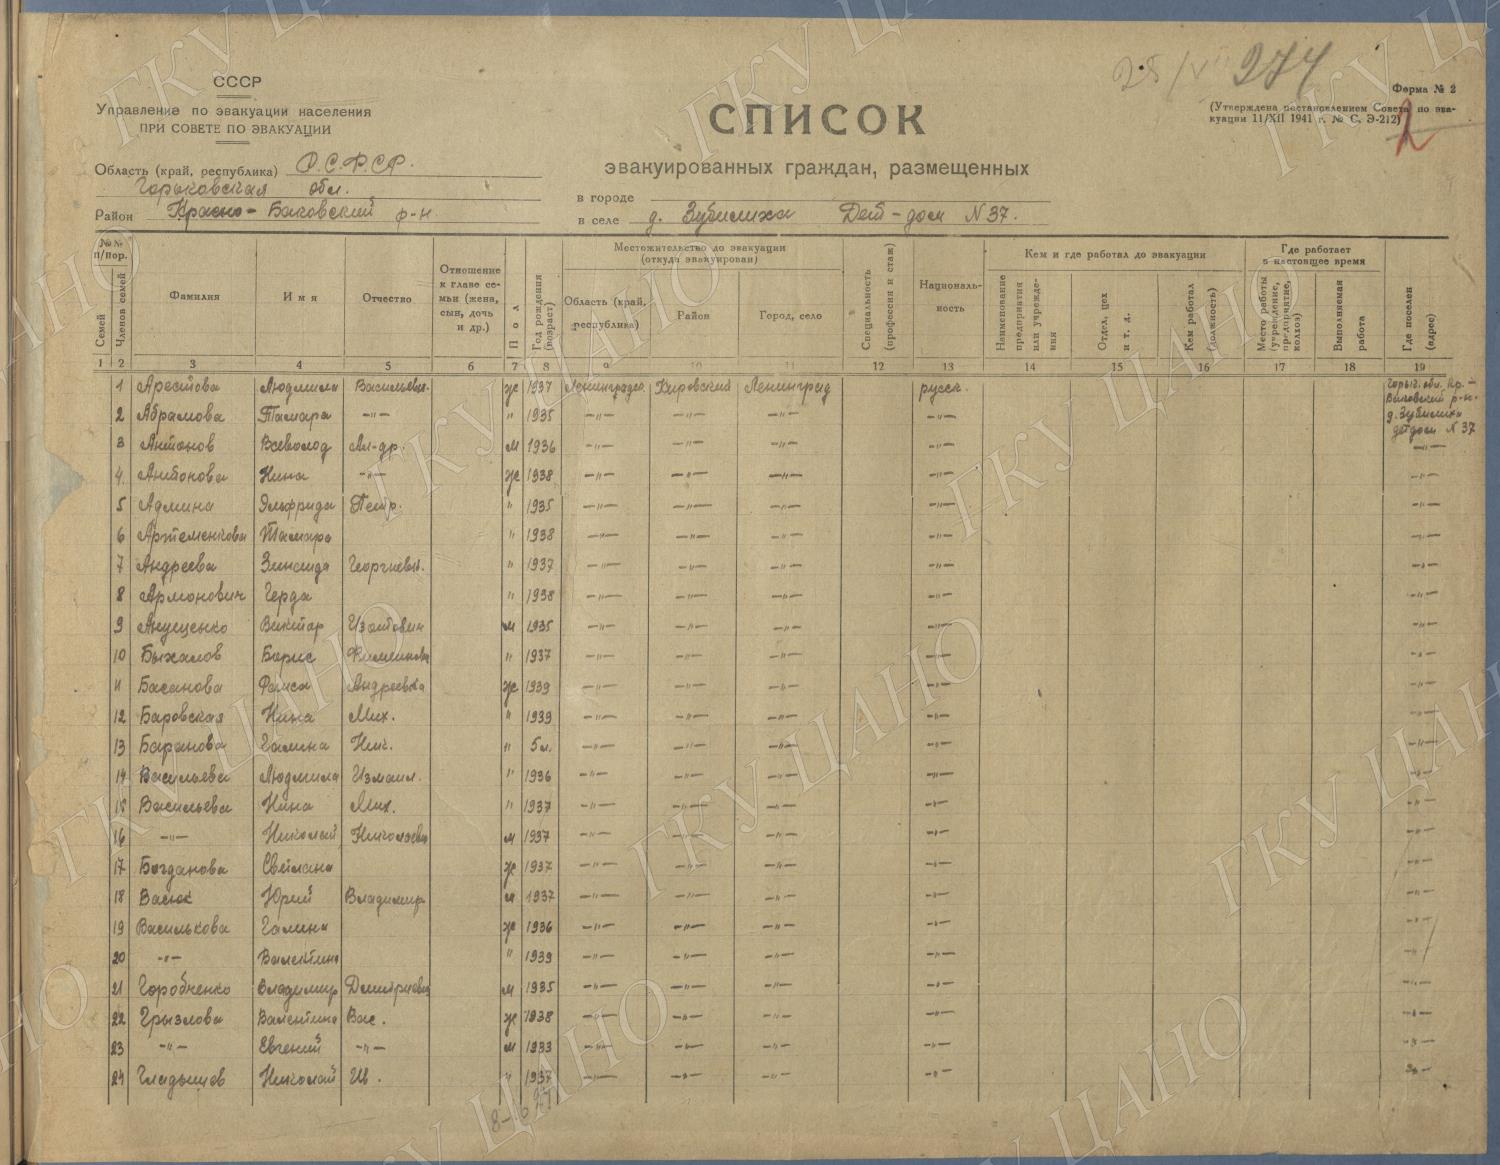 СССР
Управление по эвакуации населения
ПРИ СОВЕТЕ ПО ЭВАКУАЦИИ
Область (край, республика) Р.С.Ф.СР.
Горьковская обл.
Район Красно-Баковский р-н
274
Форма № 2
(Утверждена постановлением Совета по эва-
куации 11/XII 1941 г. № С. Э-212)
2
СПИСОК
эвакуированных граждан, размещенных
в городе
в селе д. Зубилиха Дет-дом N 37.
№№ п/пор. Семей Членов семей Фамилия Имя Отчество Отношение к главе се-мьи (жена, сын, дочь и др.) Пол Год рождения (возраст) Местожительство до эвакуации (откуда эвакуирован) Область (край, республика) Район Город, село Специальность (профессия и стаж) Националь-ность Кем и где работал до эвакуации Наименование предприятия или учрежде-ния Отдел, цех и т. д. Кем работал (должность) Где работает в настоящее время Место работы (учреждение, предприятие, колхоз) Выполняемая работа Где поселен (адрес)
1 2 3 4 5 6 7 8 9 10 11 12 13 14 15 16 17 18 19
1 Людмила ж 1937 Кировский Ленинград русск. Горьк. обл. Кр.-Баковский р-н. д. Зубилиха детдом N 37
2 Абрамова Тамара —"— " 1935 —"— —"— —"— —"—
3 Антонов Всеволод Ал-др. м 1936 —"— —"— —"— —"— —"—
4 Антонова Нина —"— ж 1938 —"— —"— —"— —"— —"—
5 Админа Эльфрида Петр. " 1935 —"— —"— —"— —"— —"—
6 Артеменкова Тамара " 1938 —"— —"— —"— —"— —"—
7 Андреева Зинаида " 1937 —"— —"— —"— —"— —"—
8 Армонович Герда " 1938 —"— —"— —"— —"— —"—
9 Виктар м 1935 —"— —"— —"— —"— —"—
10 Быхалов Борис " 1937 —"— —"— —"— —"— —"—
11 Басанова Раиса Андреевна ж 1939 —"— —"— —"— —"— —"—
12 Баровская Нина Мих. " 1939 —"— —"— —"— —"— —"—
13 Баранова Галина Ник. " 5 л. —"— —"— —"— —"— —"—
14 Васильева Людмила Измаил. " 1936 —"— —"— —"— —"— —"—
15 Васильева Нина Мих. " 1937 —"— —"— —"— —"— —"—
16 —"— Николай Николаевич м 1937 —"— —"— —"— —"— —"—
17 Богданова Светлана ж 1937 —"— —"— —"— —"— —"—
18 Васюк Юрий Владимир. м 1937 —"— —"— —"— —"— —"—
19 Василькова Галина ж 1936 —"— —"— —"— —"— —"—
20 —"— Валентина " 1939 —"— —"— —"— —"— —"—
21 Горобченко Владимир Дмитриевич м 1935 —"— —"— —"— —"— —"—
22 Грызлова Валентина Вас. ж 1938 —"— —"— —"— —"— —"—
23 —"— Евгений —"— м 1933 —"— —"— —"— —"— —"—
24 Гладышев Николай Ив. " 1937 —"— —"— —"— —"— —"—
ГКУ ЦАНО